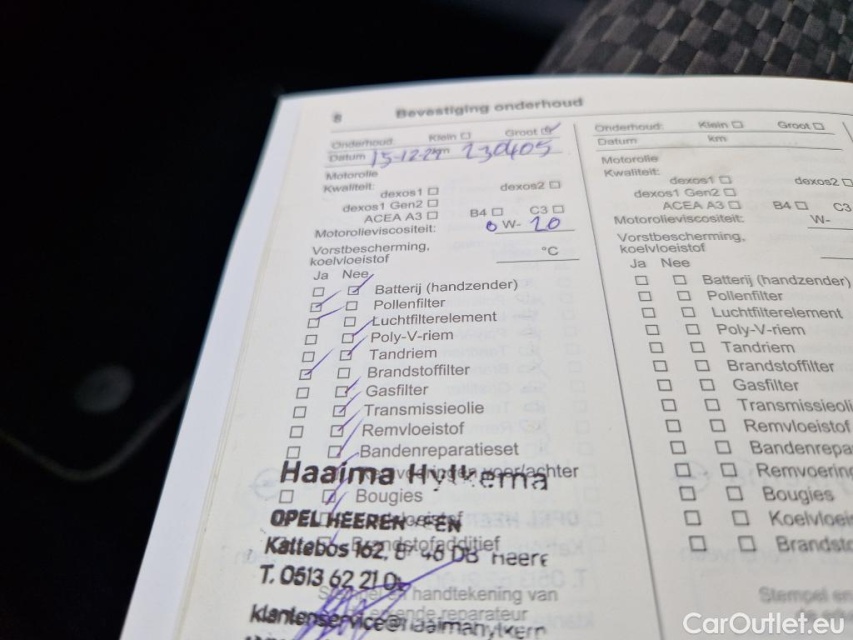 8 Bevestiging onderhoud
Onderhoud: Klein Groot
Datum 15-12-21 km 230405
Motorolie
Kwaliteit: dexos1 dexos2
dexos1 Gen2
ACEA A3 B4 C3
Motorolieviscositeit: 0 W- 20
Vorstbescherming,
koelvloeistof °C
Ja Nee
Batterij (handzender)
Pollenfilter
Luchtfilterelement
Poly-V-riem
Tandriem
Brandstoffilter
Gasfilter
Transmissieolie
Remvloeistof
Bandenreparatieset
voor/achter
Haaima Hylkema
Bougies
OPEL HEERENVEEN
Brandstofadditief
Kattebos 162, 8446 DB Heere
T. 0513 62 21 0
Stempel en handtekening van
erkende reparateur
klantenservice@haaimahylkem
Onderhoud: Klein Groot
Datum km
Motorolie
Kwaliteit: dexos1 dexos2
dexos1 Gen2
ACEA A3 B4 C3
Motorolieviscositeit: W-
Vorstbescherming,
koelvloeistof
Ja Nee
Batterij (handzender)
Pollenfilter
Luchtfilterelement
Poly-V-riem
Tandriem
Brandstoffilter
Gasfilter
Transmissieoli
Remvloeistof
Bandenrepa
Remvoering
Bougies
Koelvloei
Brandsto
Stempel en
CarOutlet.eu